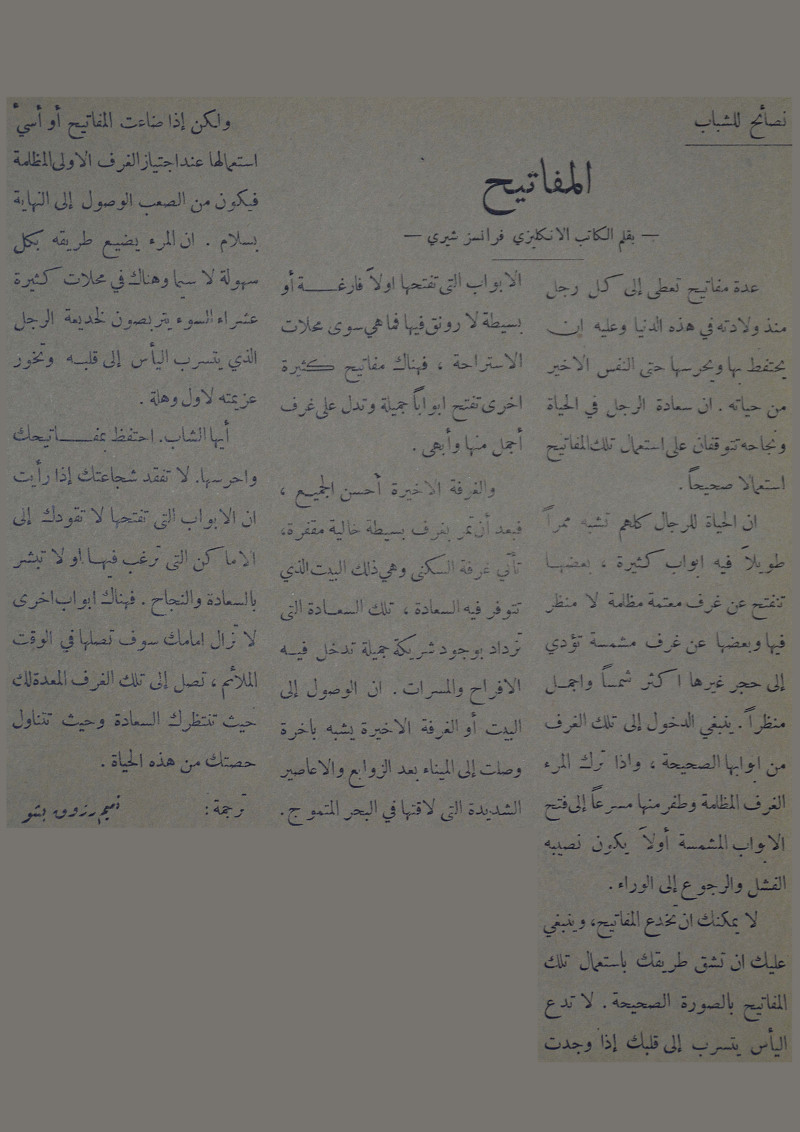 نصائح للشباب
المفاتيح
— بقلم الكاتب الانكليزي فرانسز شيري —
عدة مفاتيح تعطى إلى كل رجل
منذ ولادته في هذه الدنيا وعليه ان
يحتفط بها ويحرسها حتى النفس الاخير
من حياته . ان سعادة الرجل في الحياة
ونجاحه تتوقفان على استعمال تلك المفاتيح
استعمالا صحيحاً .
ان الحياة للرجال كلهم تشبه ممراً
طويلاً فيه ابواب كثيرة ، بعضها
تنفتح عن غرف معتمة مظلمة لا منظر
فيها وبعضها عن غرف مشمسة تؤدي
إلى حجر غيرها اكثر شمساً واجمل
منظراً . ينبغي الدخول إلى تلك الغرف
من ابوابها الصحيحة ، واذا ترك المرء
الغرف المظلمة وطفر منها مسرعاً إلى فتح
الابواب المشمسة أولاً يكون نصيبه
الفشل والرجوع إلى الوراء .
لا يمكنك ان تخدع المفاتيح، وينبغي
عليك ان تشق طريقك باستعمال تلك
المفاتيح بالصورة الصحيحة . لا تدع
اليأس يتسرب إلى قلبك إذا وجدت
الابواب التي تفتحها اولاً فارغة أو
بسيطة لا رونق فيها فما هي سوى محلات
الاستراحة ، فهناك مفاتيح كثيرة
اخرى تفتح ابواباً جميلة وتدل على غرف
أجمل منها وأبهى .
والغرفة الاخيرة أحسن الجميع ،
فبعد أن تمر بغرف بسيطة خالية مقفرة،
تأتي غرفة السكنى وهي ذلك البيت الذي
تتوفر فيه السعادة ، تلك السعادة التي
تزداد بوجود شريكة جميلة تدخل فيه
الافراح والمسرات . ان الوصول إلى
البيت أو الغرفة الاخيرة يشبه باخرة
وصلت إلى الميناء بعد الزوابع والاعاصير
الشديدة التي لاقتها في البحر المتموج .
ولكن إذا ضاعت المفاتيح أو أسيء
استعمالها عند اجتياز الغرف الاولى المظلمة
فيكون من الصعب الوصول إلى النهاية
بسلام . ان المرء يضيع طريقه بكل
سهولة لا سيما وهناك في محلات كثيرة
عشراء السوء يتربصون لخديعة الرجل
الذي يتسرب اليأس إلى قلبه وتخور
عزيمته لاول وهلة .
أيها الشاب. احتفظ بمفاتيحك
واحرسها. لا تفقد شجاعتك إذا رأيت
ان الابواب التي تفتحها لا تقودك إلى
الاماكن التي ترغب فيها او لا تبشر
بالسعادة والنجاح . فهناك ابواب اخرى
لا تزال امامك سوف تصلها في الوقت
الملائم ، تصل إلى تلك الغرف المعدة لك
حيث تنتظرك السعادة وحيث تتناول
حصتك من هذه الحياة .
ترجمة : نسيم رزوق بشو